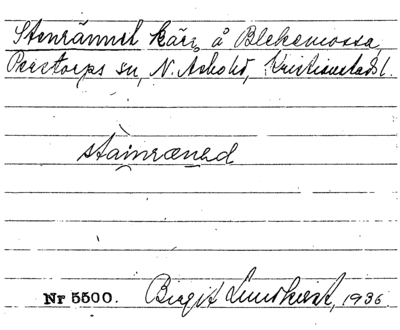 Stenrännet kärr å Blekemossa,
Perstorps sn, N. Åsbohd, Kristianstads l.
stainræned
Nr 5500. Birgit Lundkvist, 1936.